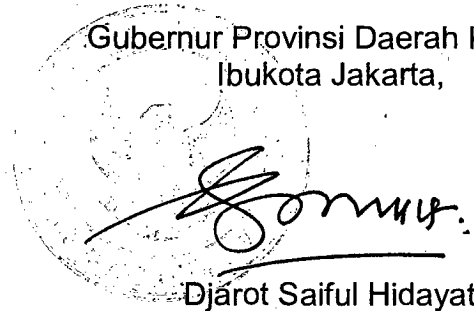 Gubernur Provinsi Daerah
Ibukota Jakarta,
Djarot Saiful Hidayat